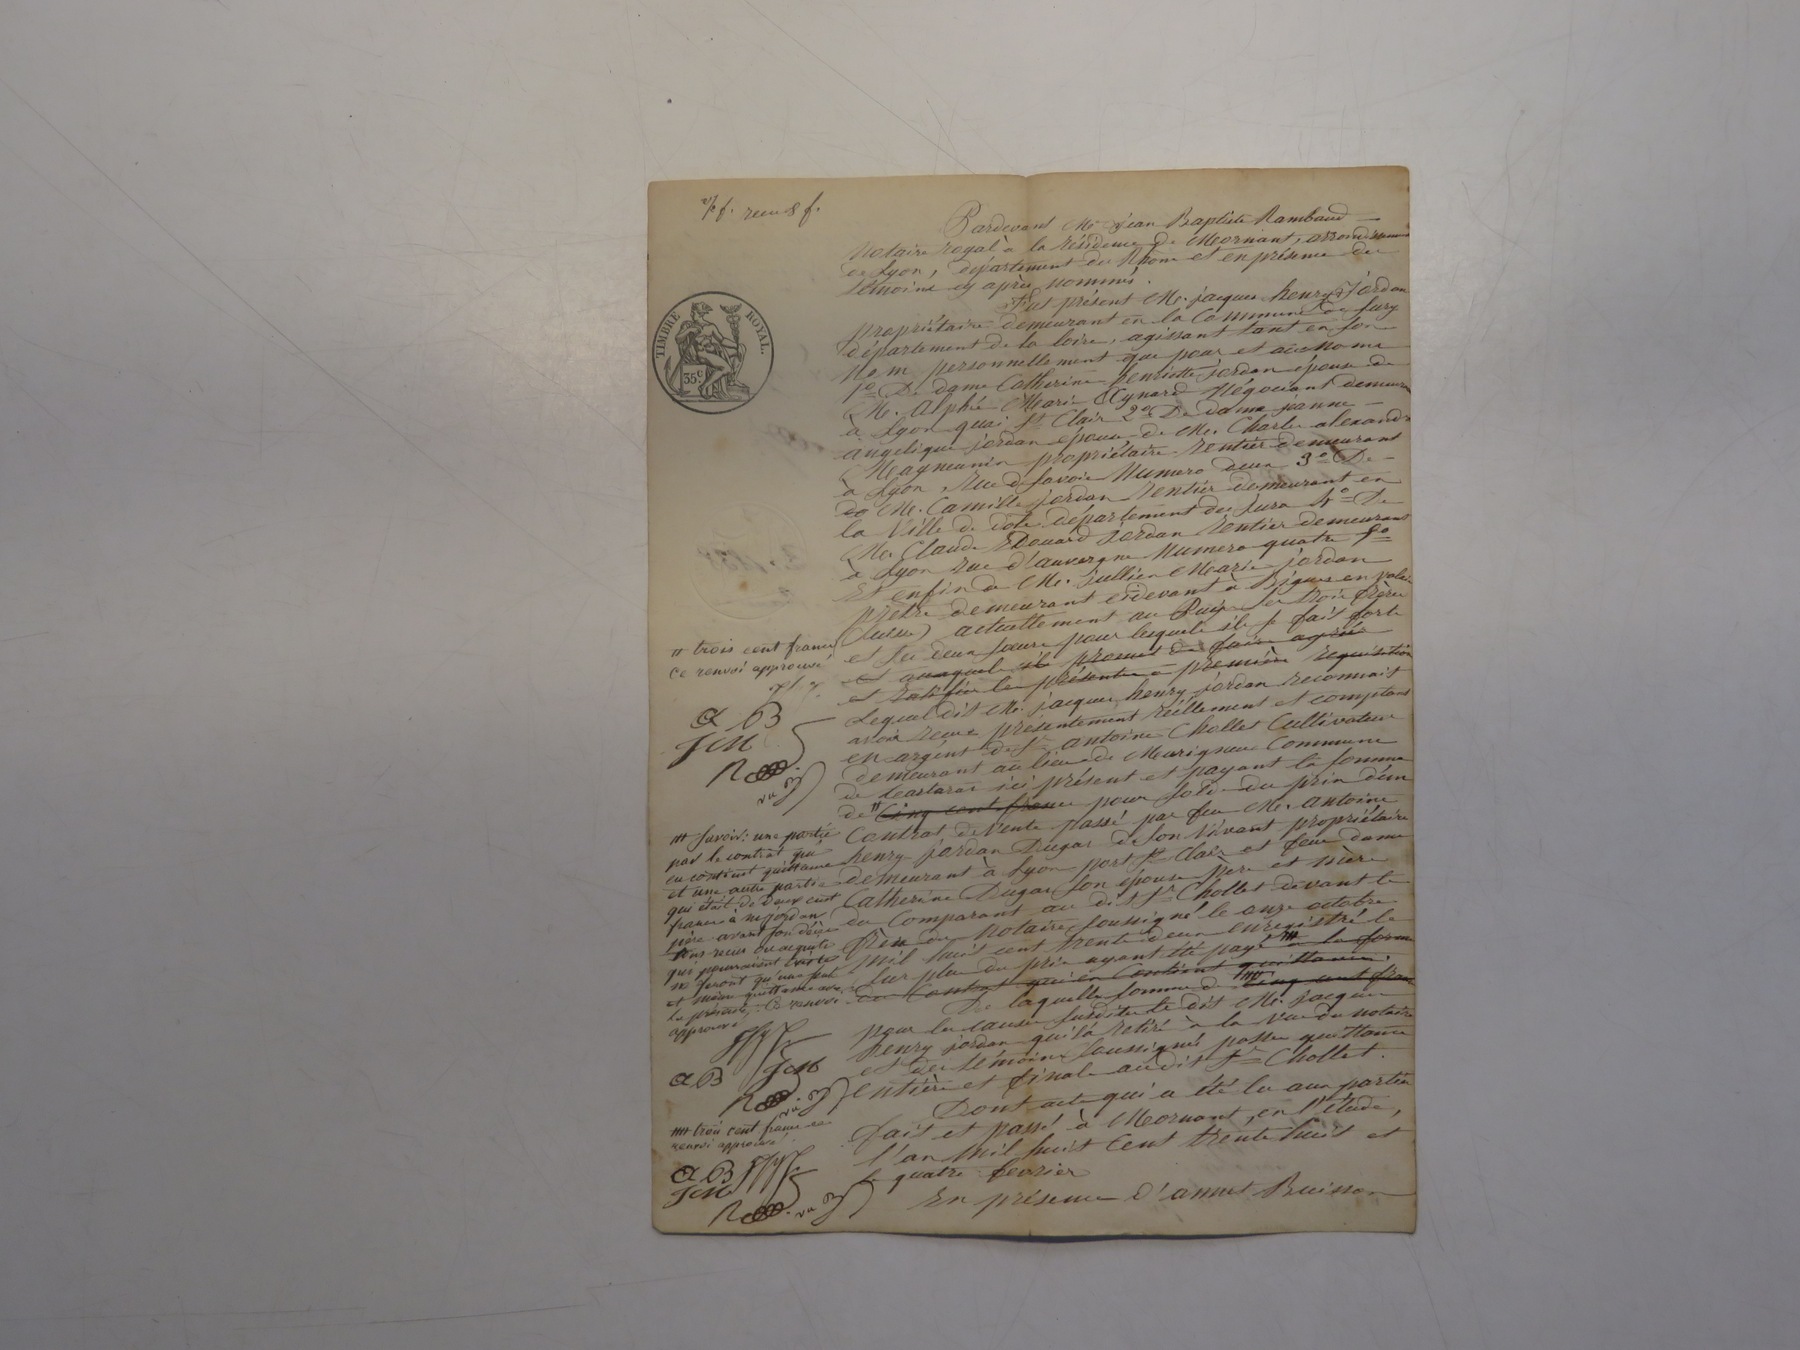 reçu 8 f.
Pardevant Me Jean Baptiste Rambaud
Notaire royal à la résidence de Mornant, arrondissement
de Lyon, département du Rhône et en présence des
témoins cy après nommés.
Fut présent Mr. jacques henry jordan
propriétaire demeurant en la Commune de Sury
département de la loire, agissant tant en son
nom personnellement que pour et au nom
1º De dame Catherine henriette jordan épouse de
Mr. Alphée Marie Aynard Négociant demeurant
à Lyon quai St Clair 2º De dame jeanne
angelique jordan épouse de Mr. Charles alexandre
Magneunin propriétaire rentier demeurant
à Lyon, rue de Savoie Numero deux 3º De
do Mr. Camille jordan rentier demeurant en
la Ville de dole département du Jura 4º De
Mr. Claude Edouard Jordan rentier demeurant
à Lyon rue d'auvergne Numero quatre 5º
Et enfin de Mr. jullien Marie jordan
prêtre demeurant cidevant à Brigue en valais
(Suisse) actuellement au Puy ses trois frères
et ses deux sœurs pour lesquels il se fait forts
et auxquels il promet de faire agréer
et ratifier les présentes à première requisition
Lequel dit Mr. jacques henry jordan reconnait
avoir reçu présentement réellement et comptant
en argent de Sr antoine Chollet Cultivateur
demeurant au lieu de Murigneux Commune
de ici présent et payant la somme
de # Cinq cent francs pour solde du prix d'un
Contrat de Vente passé par feu Mr. antoine
henry jordan Dugas de son Vivant propriétaire
demeurant à Lyon port St Clair et feue dame
Catherine Dugas son épouse père et mère
du Comparant au dit Sr Chollet devant le
notaire soussigné le onze octobre
mil huit cent trente deux enregistré le
surplus du prix ayant été payé à la forme
du Contrat qui en Contient quittance.
De laquelle somme de Cinq cent francs
pour les causes susdites le dit Mr. jacques
henry jordan qui l'a retiré à la Vue du notaire
et des témoins soussignés passe quittance
entière et finale au dit Sr Chollet.
Dont acte qui a été lu aux parties
fait et passé à Mornant, en l'étude,
l'an Mil huit Cent trente huit et
le quatre fevrier
En présence d'annet Buisson
TIMBRE ROYAL.
35 c
# trois cent francs
ce renvoi approuvé
### Savoir: une partie
par le contrat qui
en contient quittance
et une autre partie
qui était de deux cent
francs à mr jordan
père avant son décès
tous reçus ou acquits
qui pourraient
ne feront qu'une seule
et même quittance avec
les présentes. Ce renvoi
approuvé
#### trois cent francs ce
renvoi approuvé